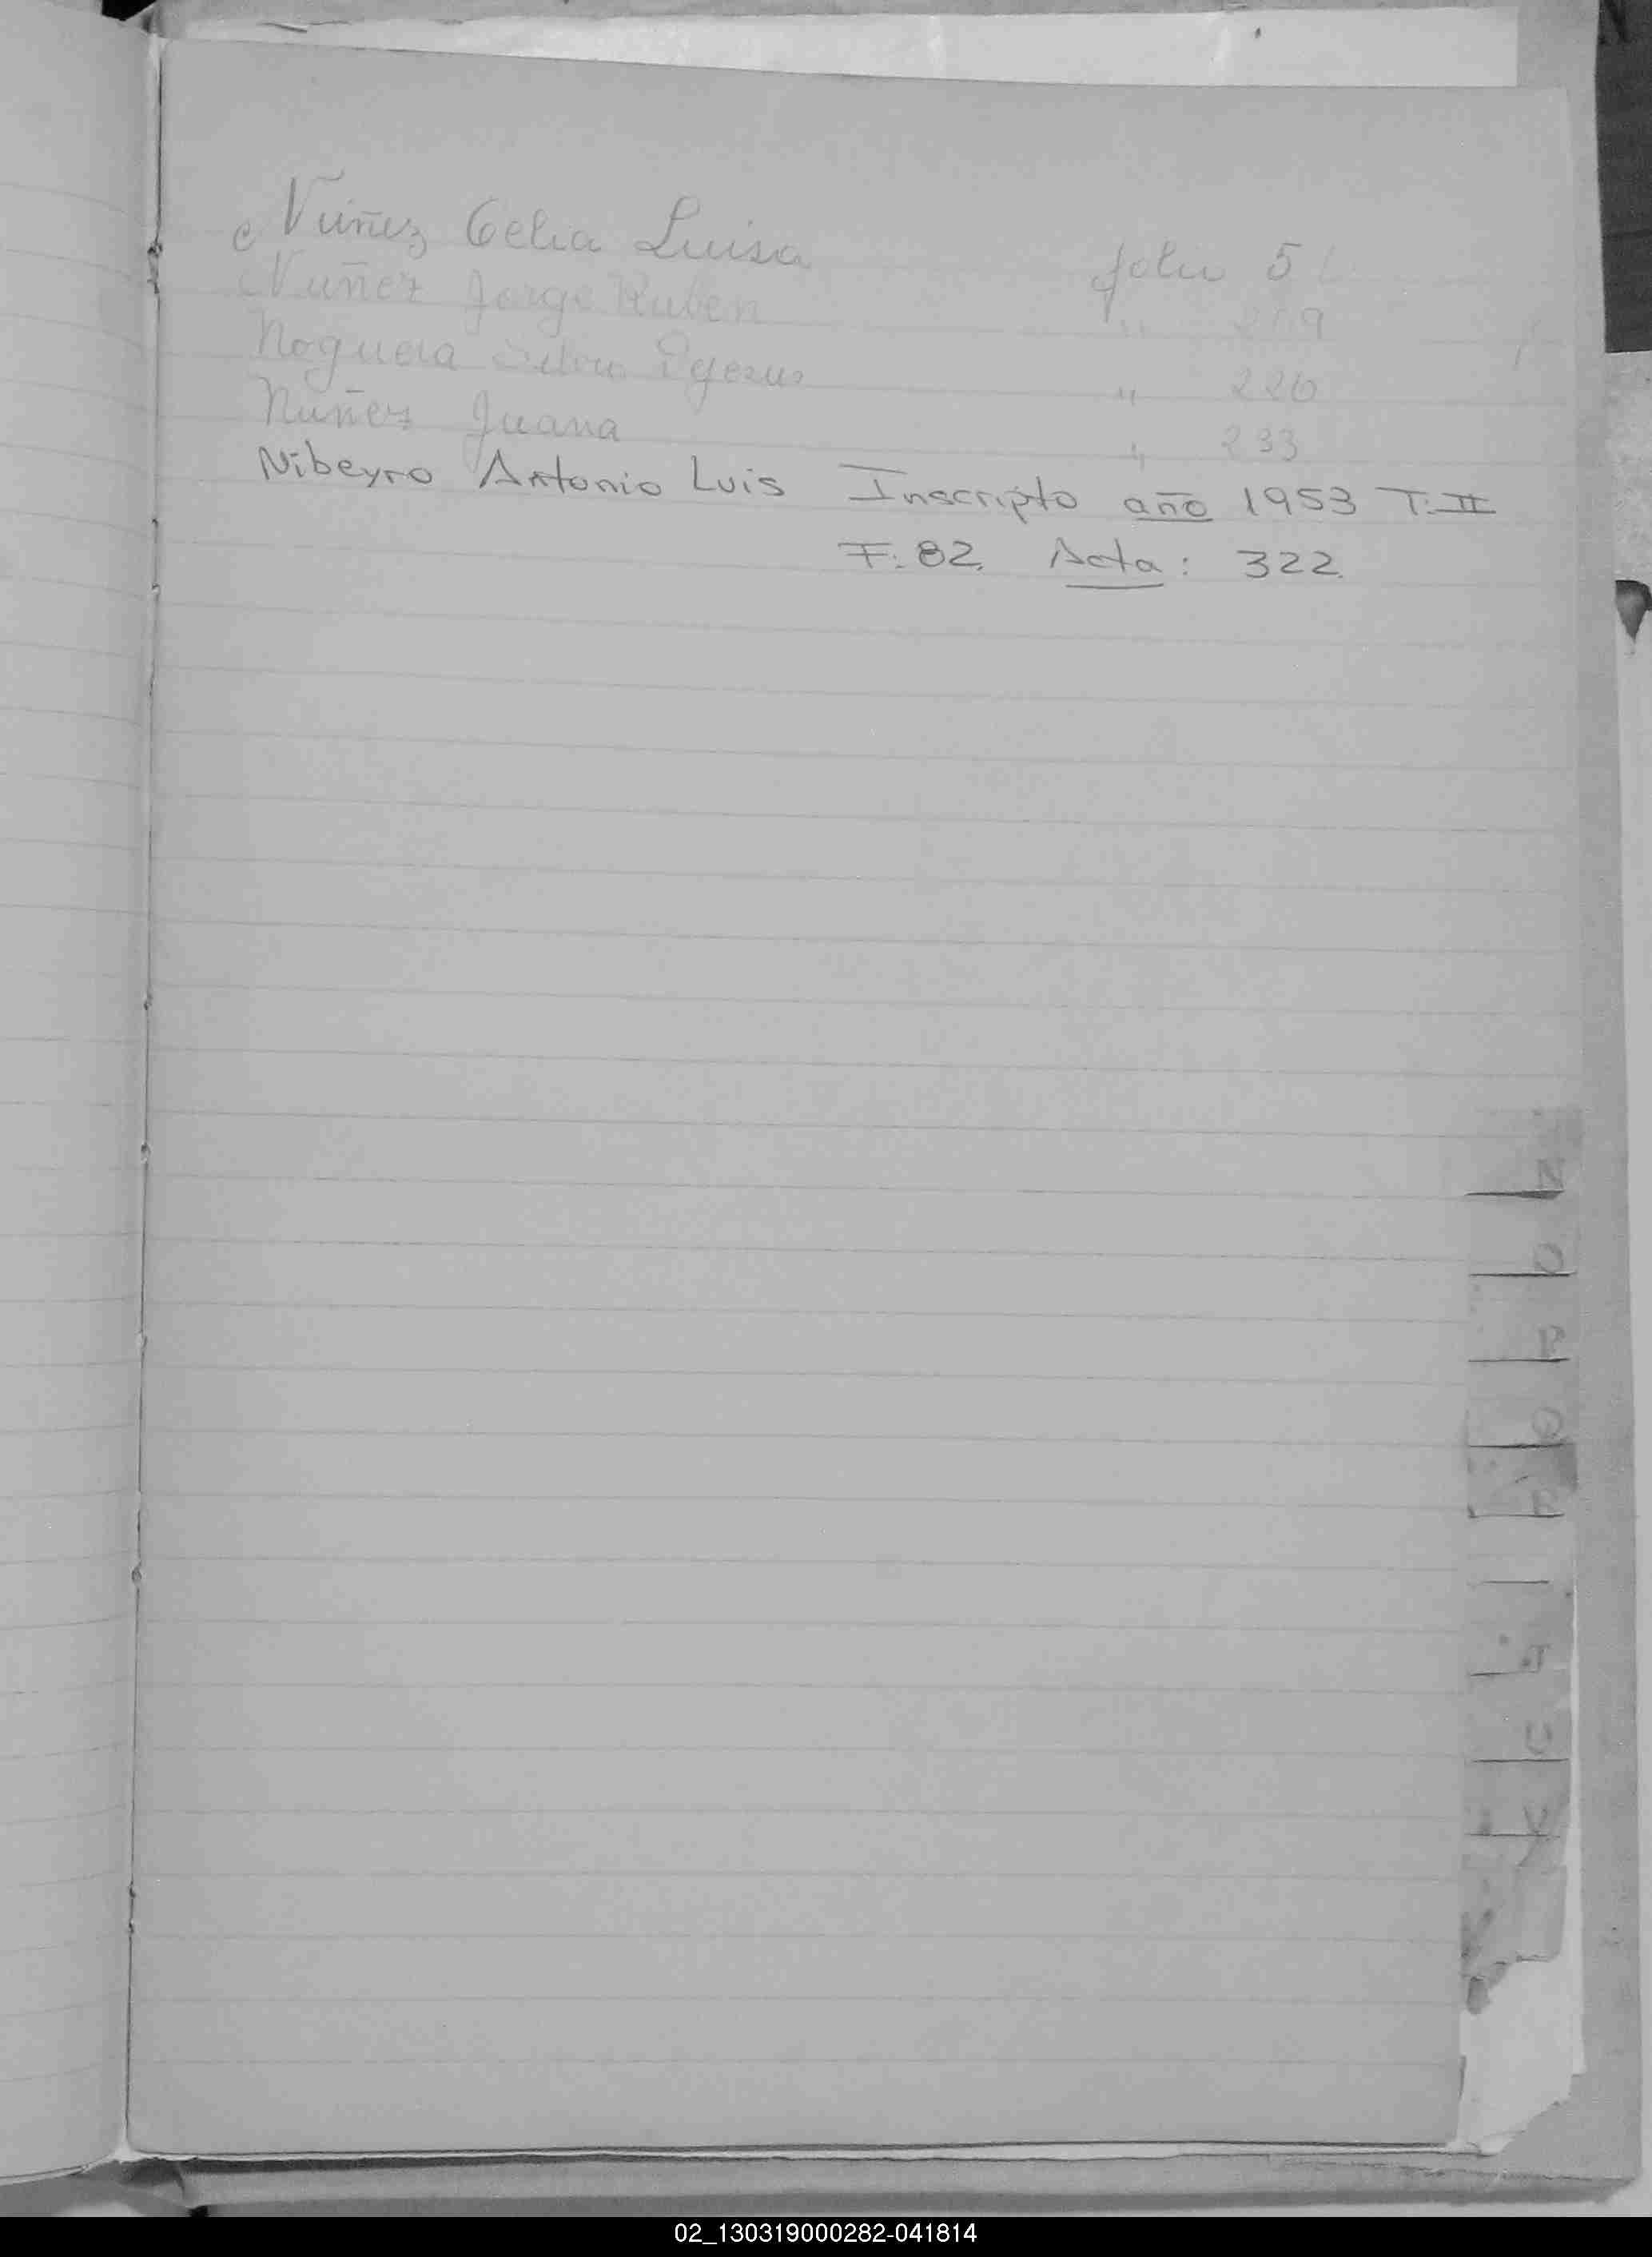 Nuñez Celia Luisa folio 5
Nuñez Jorge Ruben " 219
Noguera " 226
Nuñez Juana " 233
Nibeyro Antonio Luis Inscripto año 1953 T: II
F: 82. Acta: 322.
N
O
P
Q
R
T
U
V
02_130319000282-041814